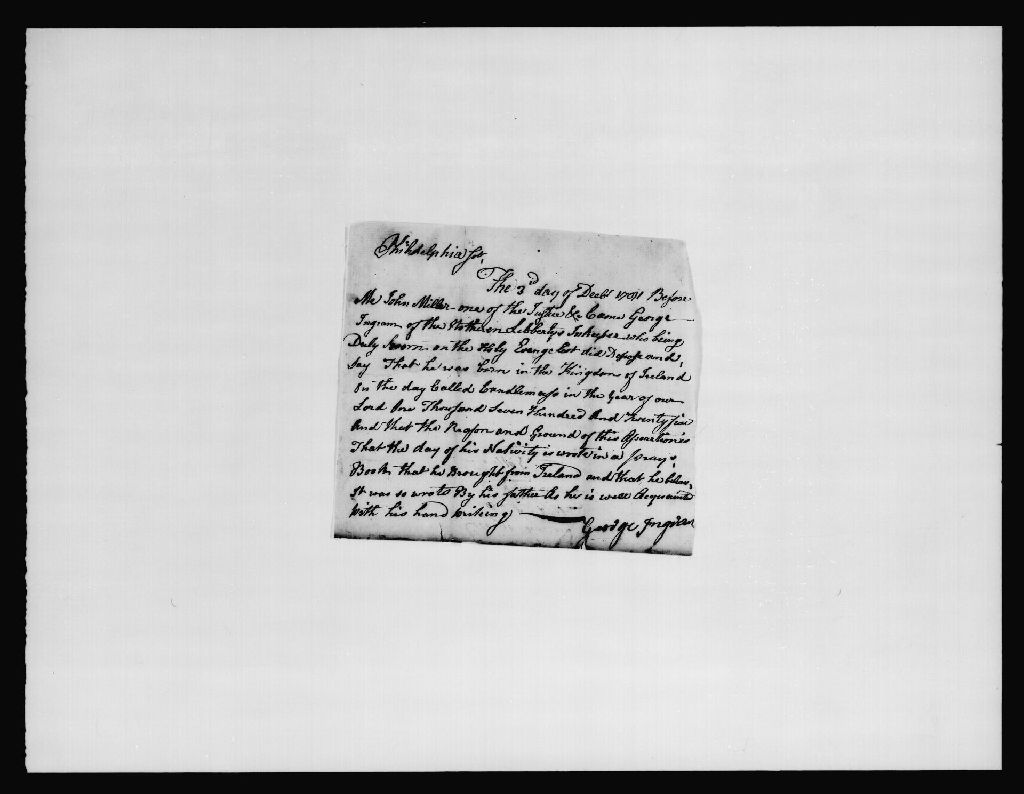 Philadelphia Sst.
The 3rd day of Decbr 1791 Before
Me John Miller one of the Justice &c Came George
Ingram of the Northern Libberlys Inkeeper who being
Duly Sworn on the Holy Evangelist did Depose and
Say That he was born in the Kingdom of Ireland
On the day Called Candlemass in the Year of our
Lord One Thousand Seven Hundred And Twenty Six
And that the Reason and Ground of this Assertion is
That the day of his Nativity is wrote in a Prayr
Book that he Brought from Ireland and that he believs
It was so wrote By his father As he is well Acquaint
With his hand writing
George Ingram